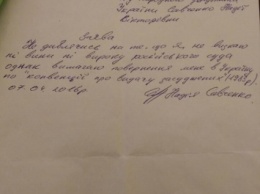 України Савченко Надії
Вікторівни
Заява
Не дивлячись на те, що я не визнаю
ні вини ні вироку російського суда
однак вимагаю повернення мене в Україну
по "конвенції про видачу засуджених" (1983р)
07.04.2016р. Надія Савченко